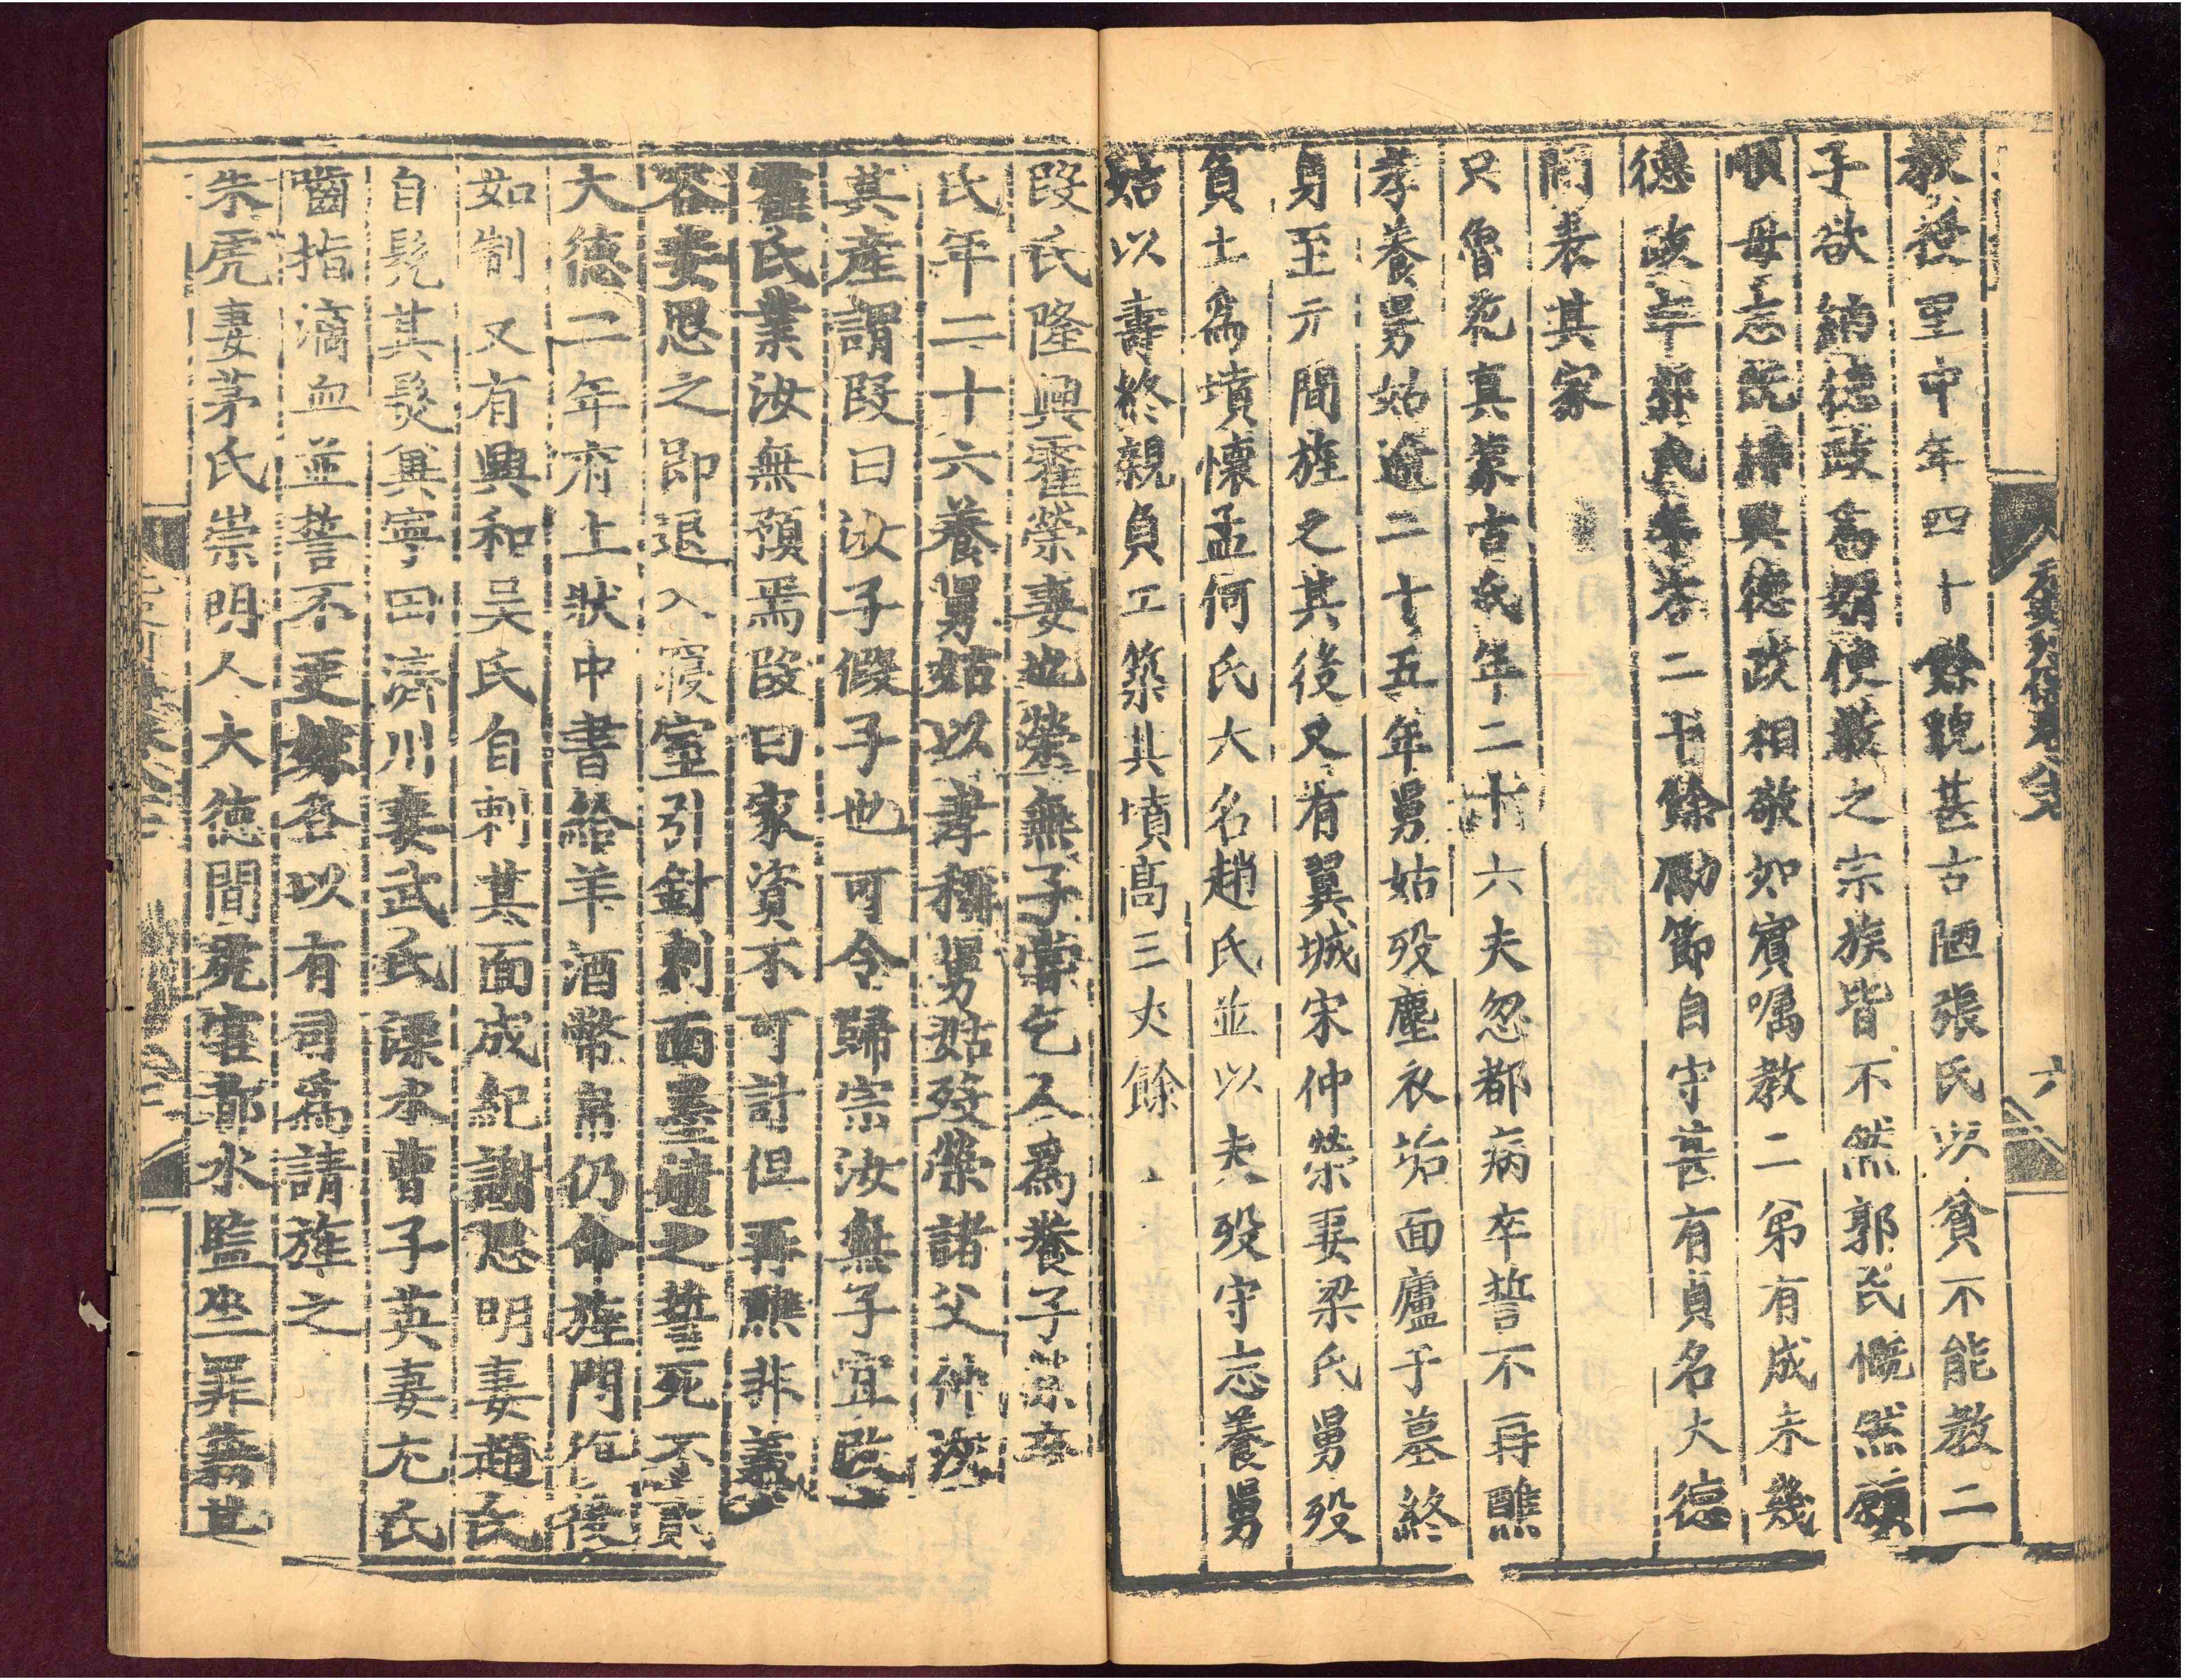 教授里中年四十餘貌甚古陋張氏以貧不能教二
子欲納德政爲壻使教之宗族皆不然郭氏慨然願
順母志既婦與德政相敬如賓囑教二弟有成未幾
德政卒郭氏年方二十餘勵節自守甚有貞名大德
間表其家
只魯花真蒙古氏年二十六夫忽都病卒誓不再醮
孝養舅姑逾二十五年舅姑歿塵衣垢面廬于墓終
身至元間旌之其後又有翼城宋仲榮妻梁氏舅歿
負土爲墳懷孟何氏大名趙氏並以夫歿守志養舅
姑以壽終親負土築其墳高三丈餘
段氏隆興霍榮妻也榮無子嘗乞人爲養子榮卒
氏年二十六養舅姑以孝稱舅姑歿榮諸父仲汶
其產謂段曰汝子假子也可令歸宗汝無子宜改
霍氏業汝無預焉段曰家資不可計但再醮非義
容妻思之即退入寢室引針刺面墨漬之誓死不貳
大德二年府上狀中書給羊酒幣帛仍命旌門復後
如制 又有興和吳氏自刺其面成紀謝思明妻趙氏
自髡其髮冀寧田濟川妻武氏溧水曹子英妻尤氏
嚙指滴血並誓不更嫁各以有司爲請旌之
朱虎妻茅氏崇明人大德間虎官都水監坐罪籍其
元史列傳卷八十八
六